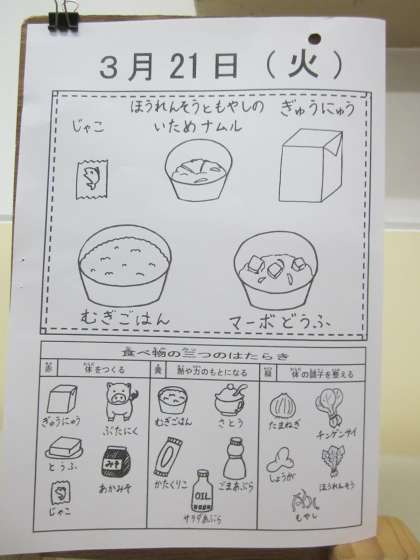 3月21日(火)
ほうれんそうともやしの
いためナムル
ぎゅうにゅう
じゃこ
むぎごはん
マーボどうふ
食べ物の三つのはたらき
赤 体をつくる
黄 熱や力のもとになる
緑 体の調子を整える
ぎゅうにゅう
ぶたにく
とうふ
みそ
あかみそ
じゃこ
むぎごはん
さとう
かたくりこ
ごまあぶら
OIL
サラダあぶら
たまねぎ
チンゲンサイ
しょうが
ほうれんそう
もやし